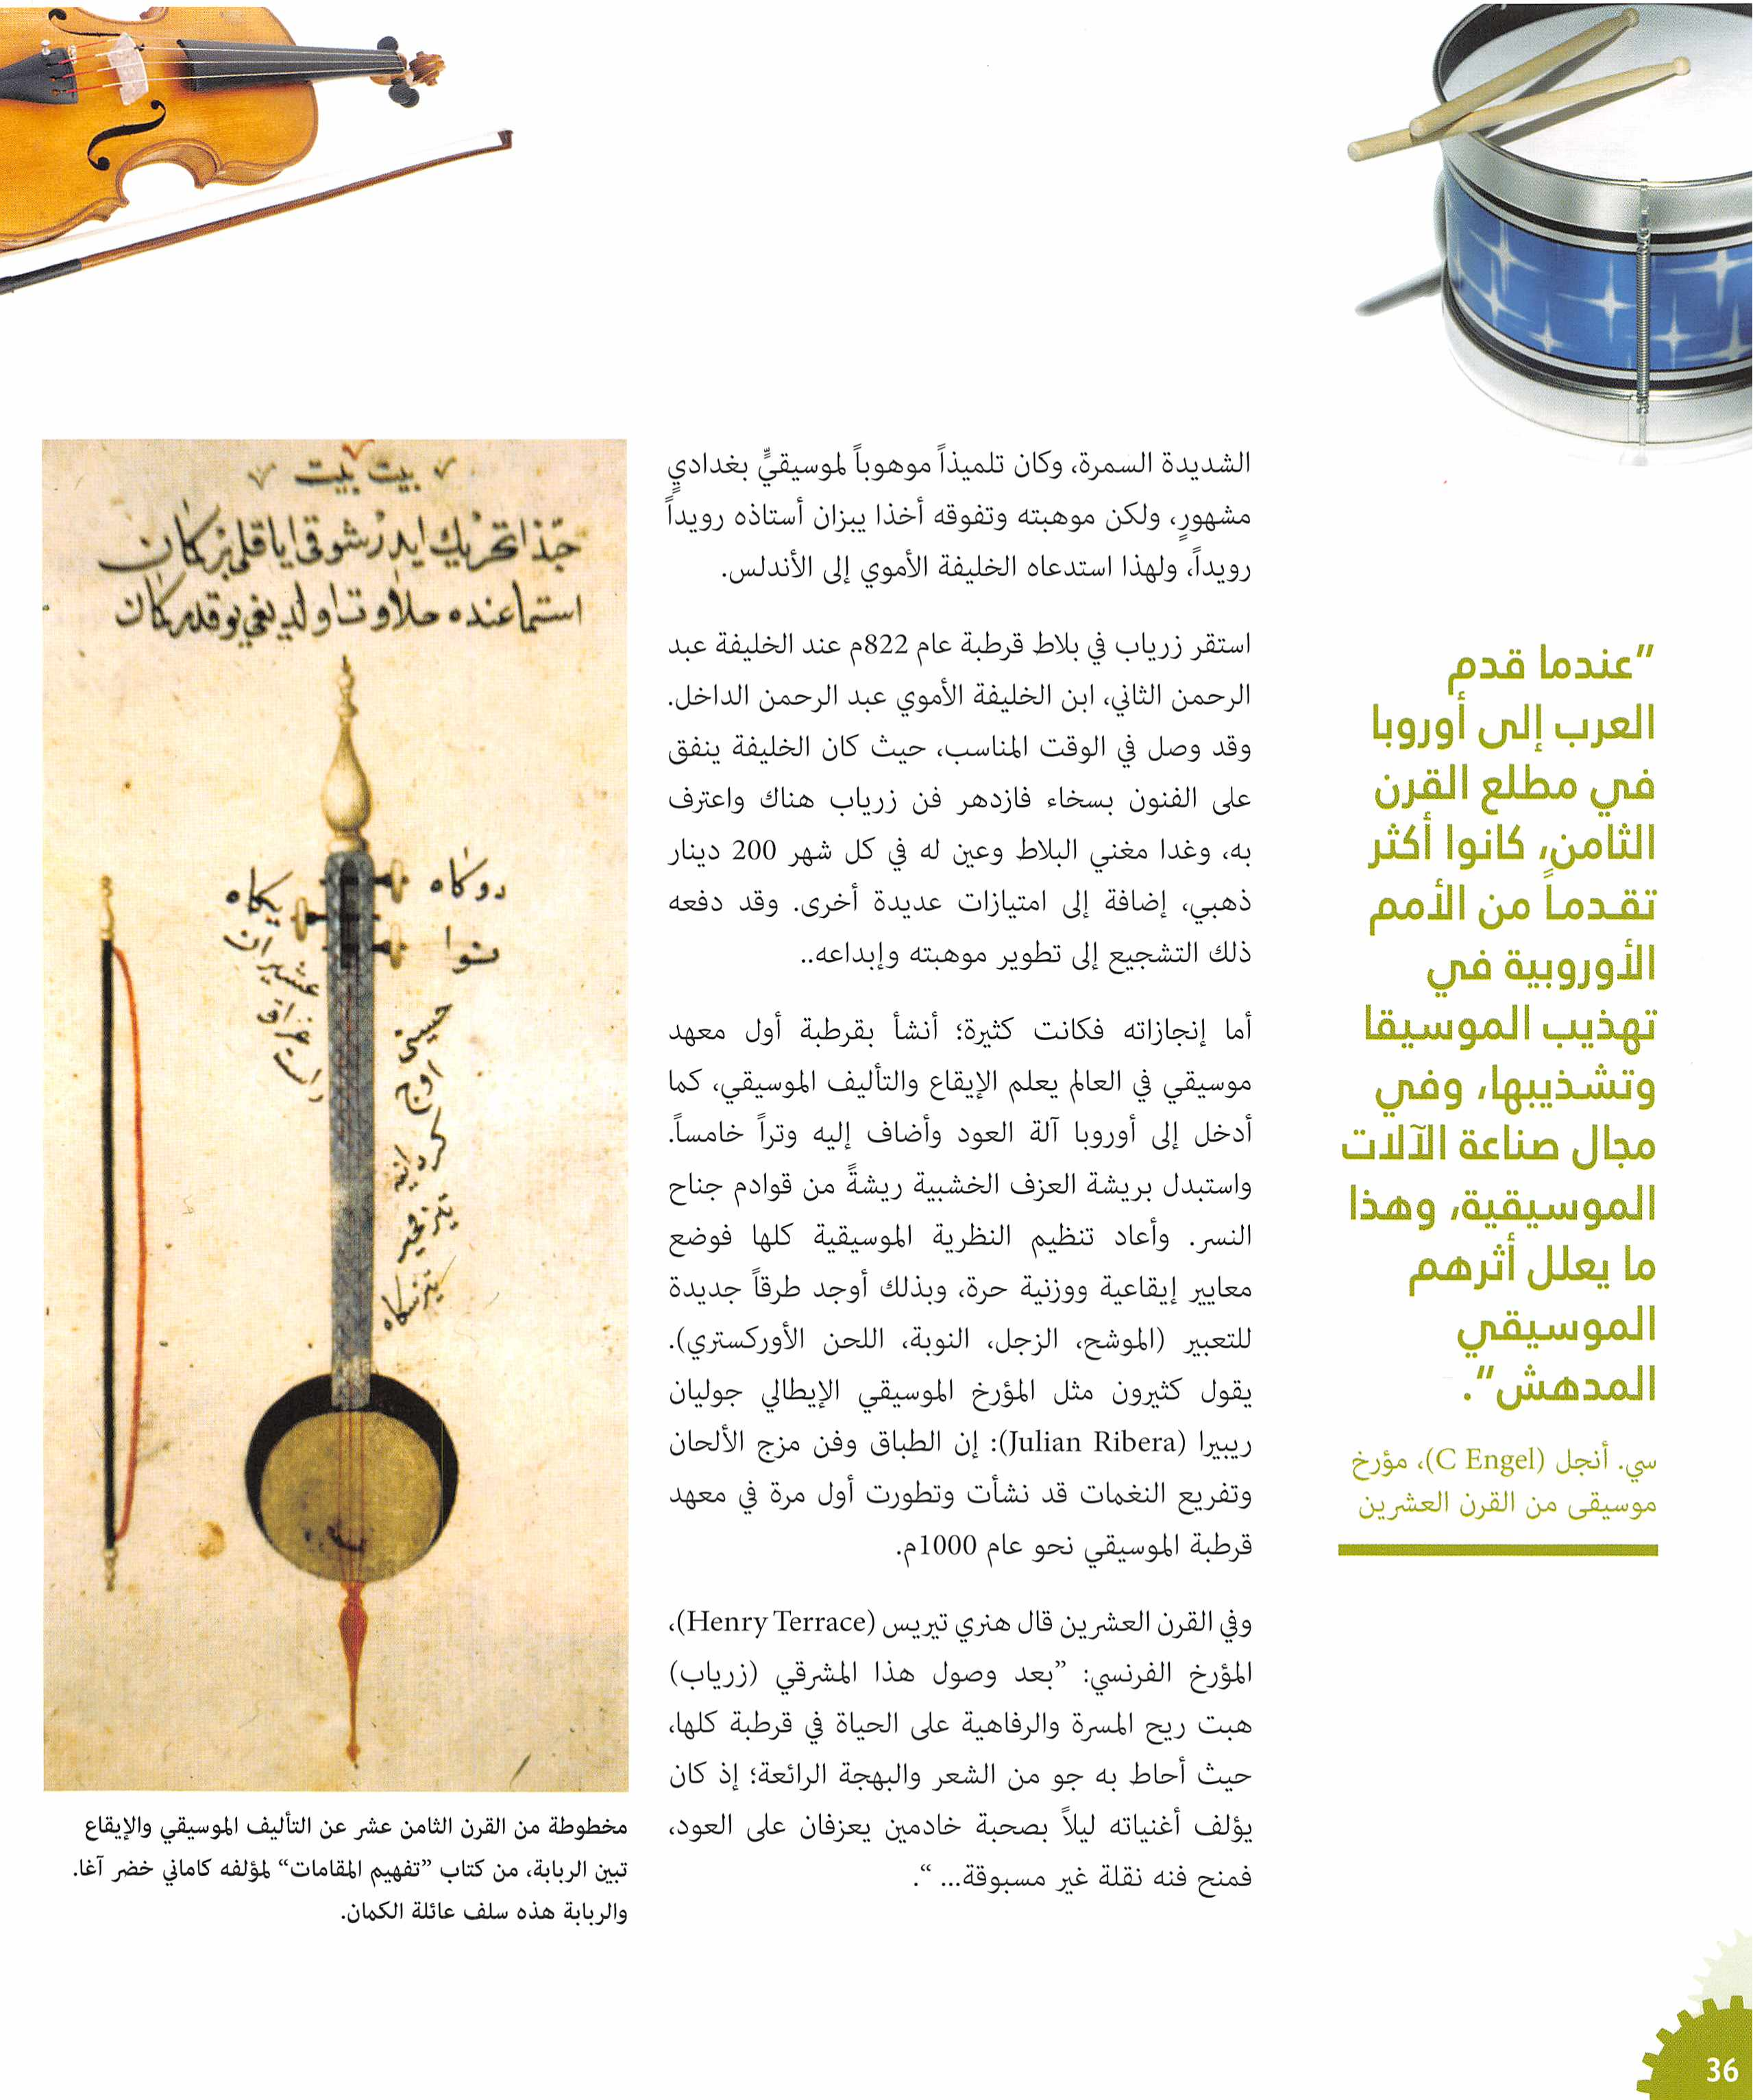 الشديدة السمرة، وكان تلميذاً موهوباً لموسيقيٍّ بغداديٍ
مشهورٍ، ولكن موهبته وتفوقه أخذا يبزان أستاذه رويداً
رويداً، ولهذا استدعاه الخليفة الأموي إلى الأندلس.
استقر زرياب في بلاط قرطبة عام 822م عند الخليفة عبد
الرحمن الثاني، ابن الخليفة الأموي عبد الرحمن الداخل.
وقد وصل في الوقت المناسب، حيث كان الخليفة ينفق
على الفنون بسخاء فازدهر فن زرياب هناك واعترف
به، وغدا مغني البلاط وعين له في كل شهر 200 دينار
ذهبي، إضافة إلى امتيازات عديدة أخرى. وقد دفعه
ذلك التشجيع إلى تطوير موهبته وإبداعه..
أما إنجازاته فكانت كثيرة؛ أنشأ بقرطبة أول معهد
موسيقي في العالم يعلم الإيقاع والتأليف الموسيقي، كما
أدخل إلى أوروبا آلة العود وأضاف إليه وتراً خامساً.
واستبدل بريشة العزف الخشبية ريشةً من قوادم جناح
النسر. وأعاد تنظيم النظرية الموسيقية كلها فوضع
معايير إيقاعية ووزنية حرة، وبذلك أوجد طرقاً جديدة
للتعبير (الموشح، الزجل، النوبة، اللحن الأوركستري).
يقول كثيرون مثل المؤرخ الموسيقي الإيطالي جوليان
ريبيرا (Julian Ribera): إن الطباق وفن مزج الألحان
وتفريع النغمات قد نشأت وتطورت أول مرة في معهد
قرطبة الموسيقي نحو عام 1000م.
وفي القرن العشرين قال هنري تيريس (Henry Terrace)،
المؤرخ الفرنسي: ”بعد وصول هذا المشرقي (زرياب)
هبت ريح المسرة والرفاهية على الحياة في قرطبة كلها،
حيث أحاط به جو من الشعر والبهجة الرائعة؛ إذ كان
يؤلف أغنياته ليلاً بصحبة خادمين يعزفان على العود،
فمنح فنه نقلة غير مسبوقة... “.
”عندما قدم
العرب إلى أوروبا
في مطلع القرن
الثامن، كانوا أكثر
تقدماً من الأمم
الأوروبية في
تهذيب الموسيقا
وتشذيبها، وفي
مجال صناعة الآلات
الموسيقية، وهذا
ما يعلل أثرهم
الموسيقي
المدهش“.
سي. أنجل (C Engel)، مؤرخ
موسيقى من القرن العشرين
بيت بيت
دوكاه
يكاه
نوا
عشيران
عراق
راست
حسيني
اوج
مخطوطة من القرن الثامن عشر عن التأليف الموسيقي والإيقاع
تبين الربابة، من كتاب ”تفهيم المقامات“ لمؤلفه كاماني خضر آغا.
والربابة هذه سلف عائلة الكمان.
36